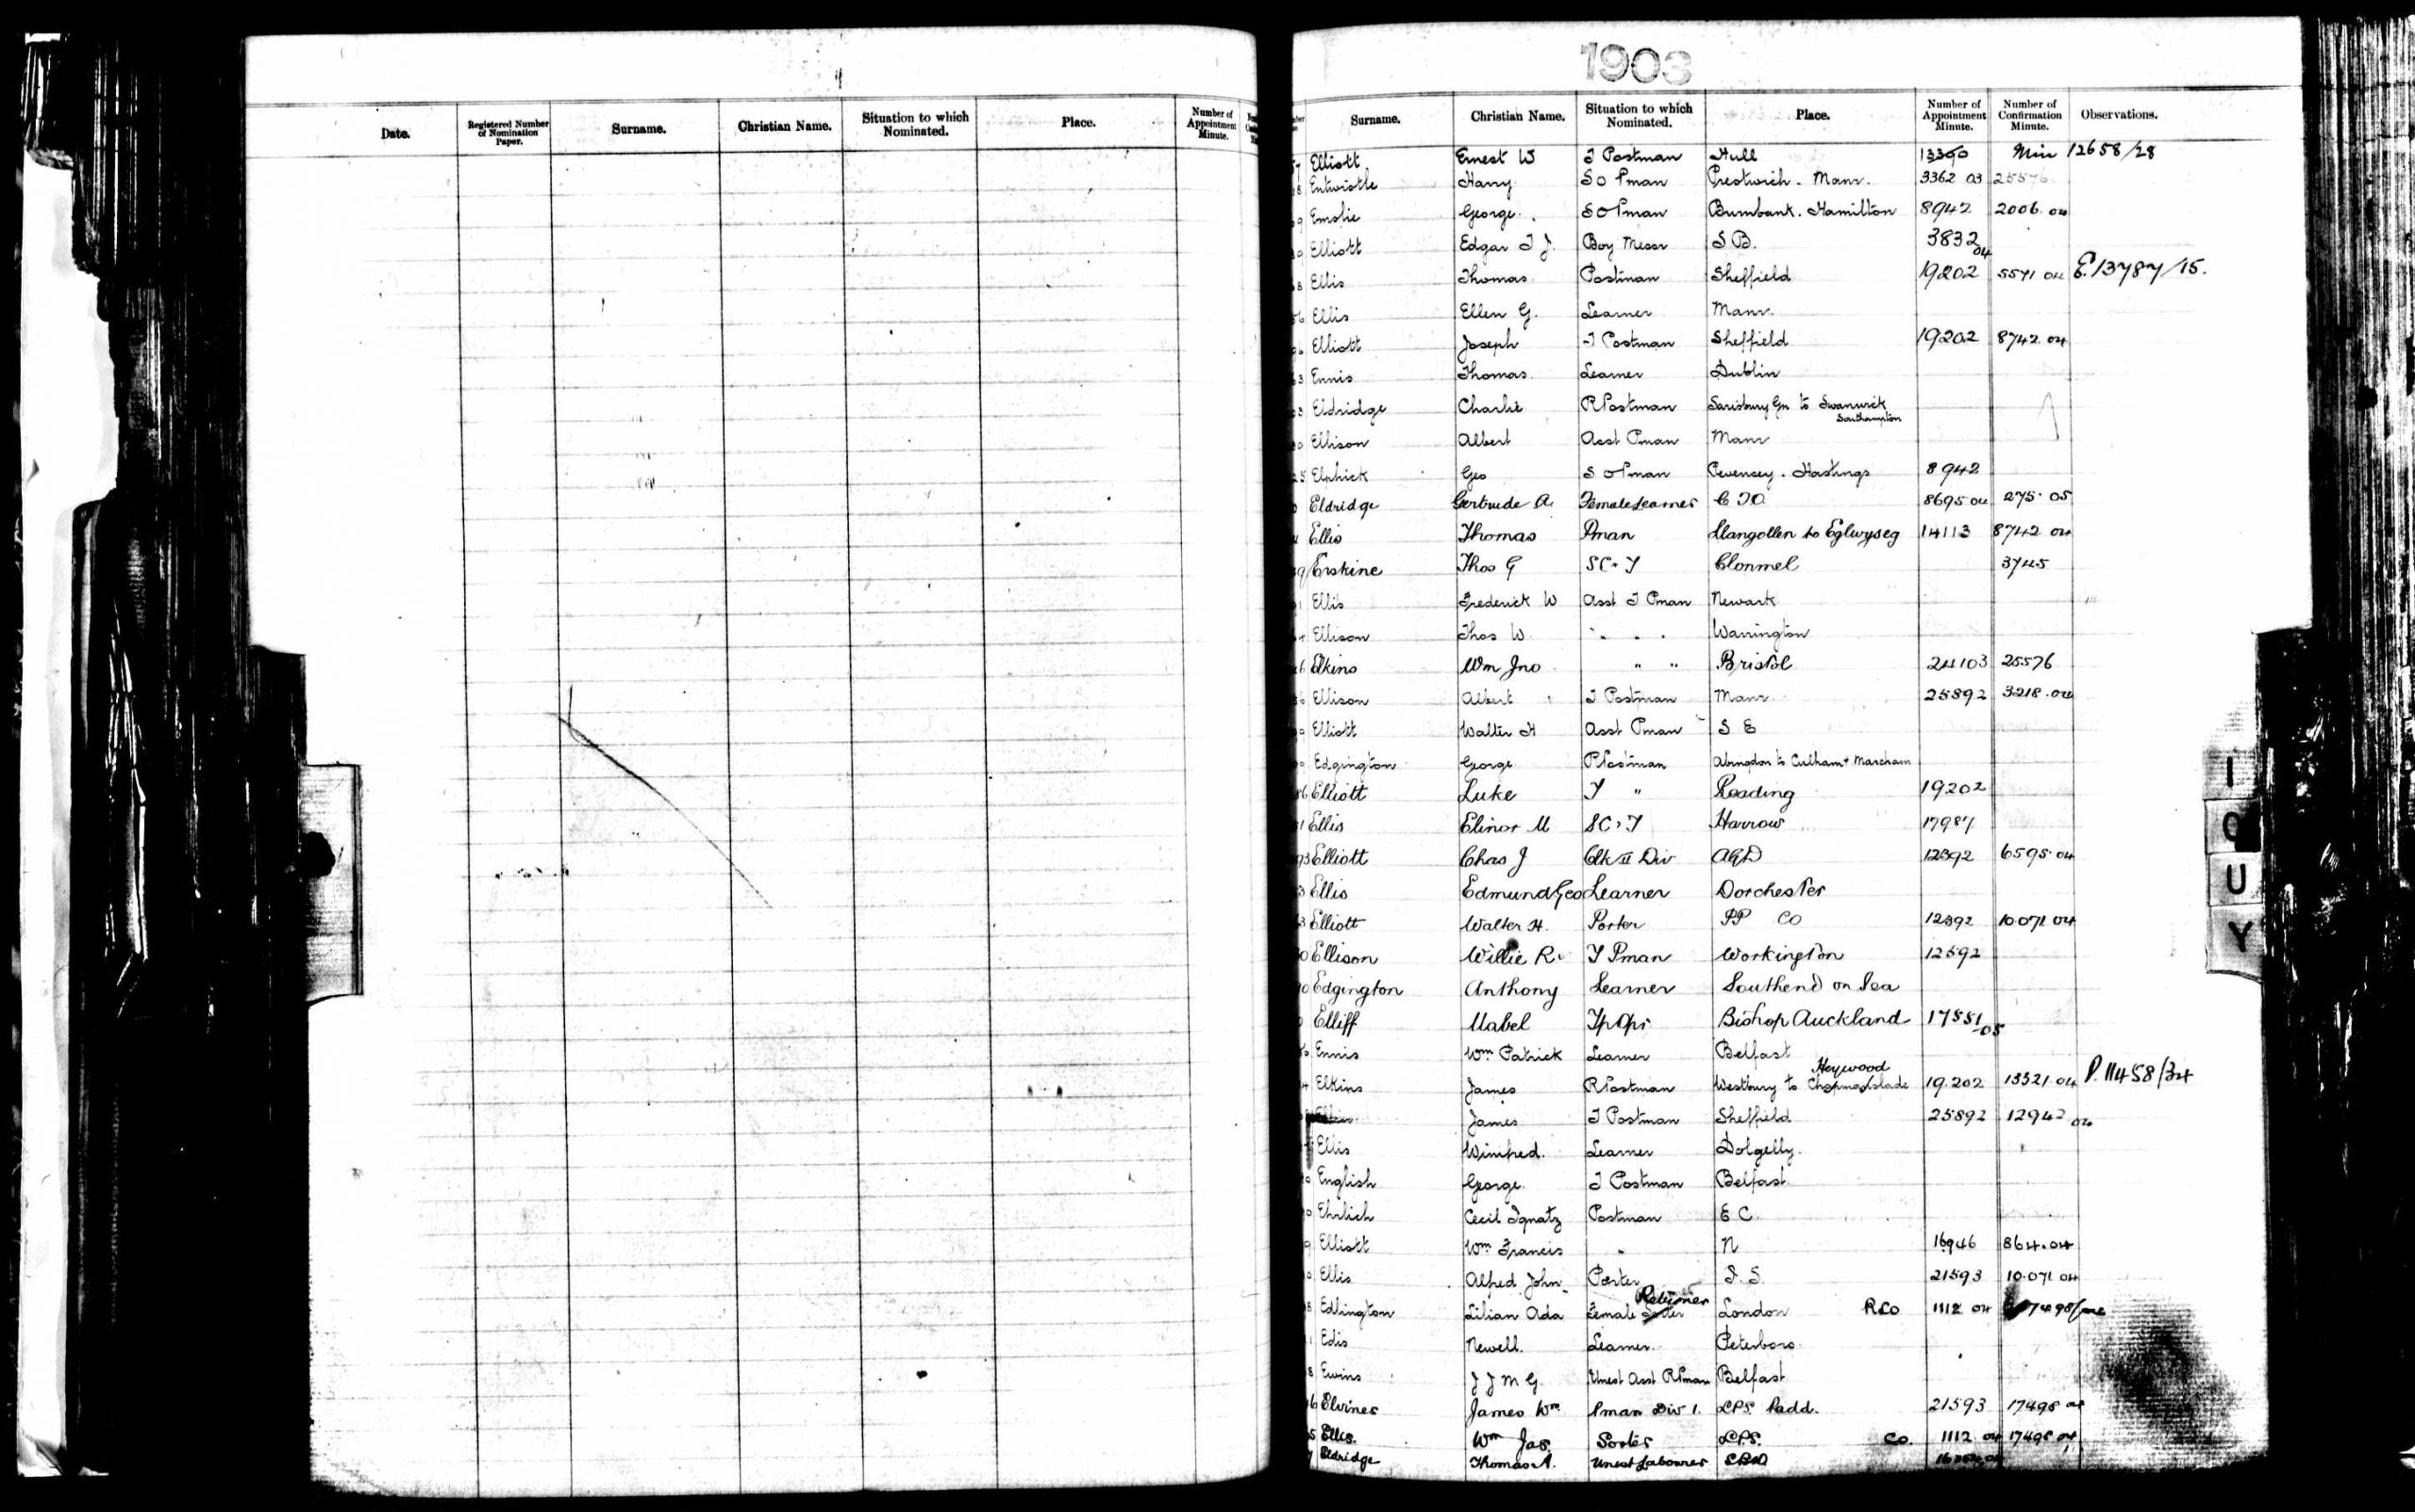 1903
Date. Registered Number of Nomination Paper. Surname. Christian Name. Situation to which Nominated. Place. Number of Appointment Minute.
Surname. Christian Name. Situation to which Nominated. Place. Number of Appointment Minute. Number of Confirmation Minute. Observations.
Elliott Ernest W T Postman Hull 13390 Min 12658/28
Entwistle Harry S O Pman Prestwich. Manr. 3362 03 25576
Emslie George. S O Pman Burnbank. Hamilton 8942 2006. 04
Elliott Edgar T J. Boy Messr S B. 3832 04
Ellis Thomas Postman Sheffield 19202 5571 04 E.13787/15.
Ellis Ellen G. Learner Manr.
Elliott Joseph T Postman Sheffield 19202 8742 04
Ennis Thomas. Learner Dublin
Eldridge Charlie R Postman Sarisbury Gn to Swanwick Southampton
Ellison Albert Asst Pman Manr
Elphick Geo S O Pman Pevensey. Hastings 8942
Eldridge Gertrude A. Female Learner C TO. 8695 04 275. 05
Ellis Thomas Pman Llangollen to Eglwyseg 14113 8742 04
Erskine Thos G SC.T Clonmel 3745
Ellis Frederick W Asst T Pman Newark
Ellison Thos W. " . . Warrington
Elkins Wm Jno " " Bristol 24103 25576
Ellison Albert T Postman Manr 25892 3218.04
Elliott Walter H Asst Pman S E
Edgington George R Postman Abingdon to Culham & Marcham
Elliott Luke T " Reading 19202
Ellis Elinor M SC.T Harrow 17987
Elliott Chas J Clk II Div AGD 12392 6595.04
Ellis Edmund Geo Learner Dorchester
Elliott Walter H. Porter PP CO 12392 10071 04
Ellison Willie R. T Pman Workington 12592
Edgington Anthony Learner Southend on Sea
Elliff Mabel Tp Opr Bishop Auckland 17551 05
Ennis Wm Patrick Learner Belfast
Elkins James R Postman Westbury to Chapmanslade Heywood 19.202 13321.04 P.11458/34
James T Postman Sheffield 25892 12942 04
Ellis Winifred. Learner Dolgelly.
English George. T Postman Belfast
Ehrlich Cecil Ignatz Postman E C.
Elliott Wm Francis " N 16946 864.04
Ellis Alfred John Porter S. S. 21593 10.071 04
Edlington Lilian Ada Female Sorter Returner London RLO 1112 04
Edis Newell. Learner. Peterboro
Ewins J J M G. Unest Asst R Pman Belfast
Elviner James Wm Pman Div 1. LPS. Padd. 21593 17498 04
Ellis. Wm Jas. Sorter LPS. CO. 1112 04 17498 04
Eldridge Thomas A. Unest Labourer
I
Q
U
Y